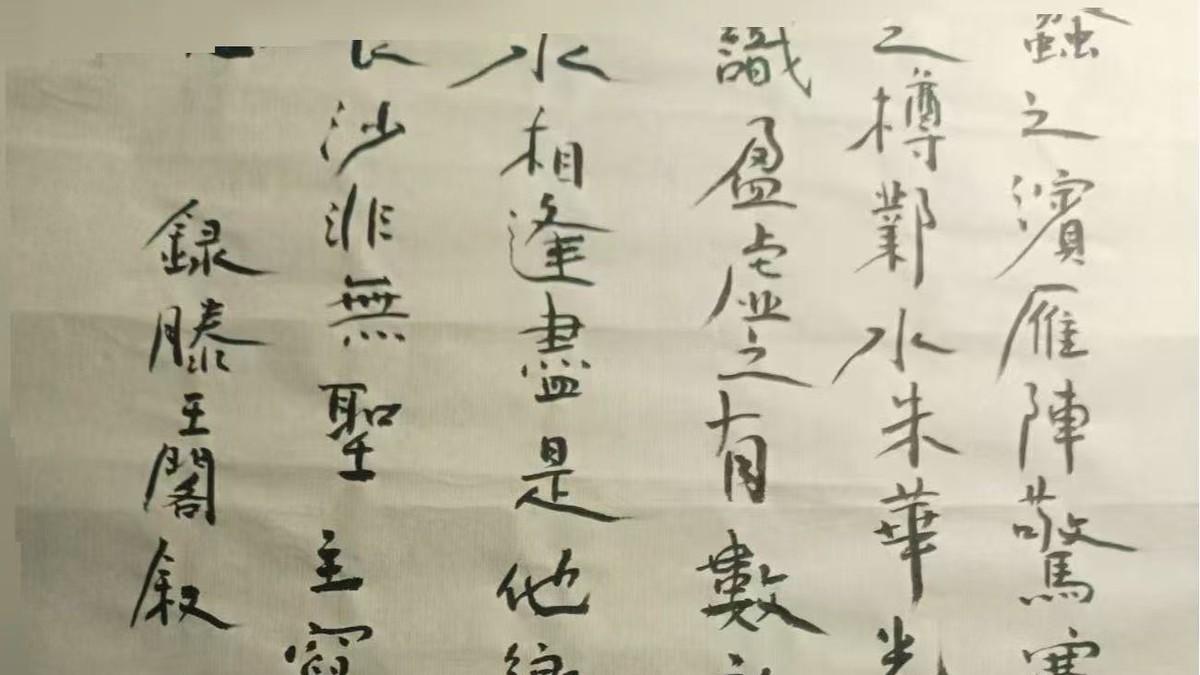 蠡之濱雁陣驚寒
之樽鄴水朱華光
識盈虛之有數
水相逢盡是他鄉
長沙非無聖主竄
錄滕王閣敘